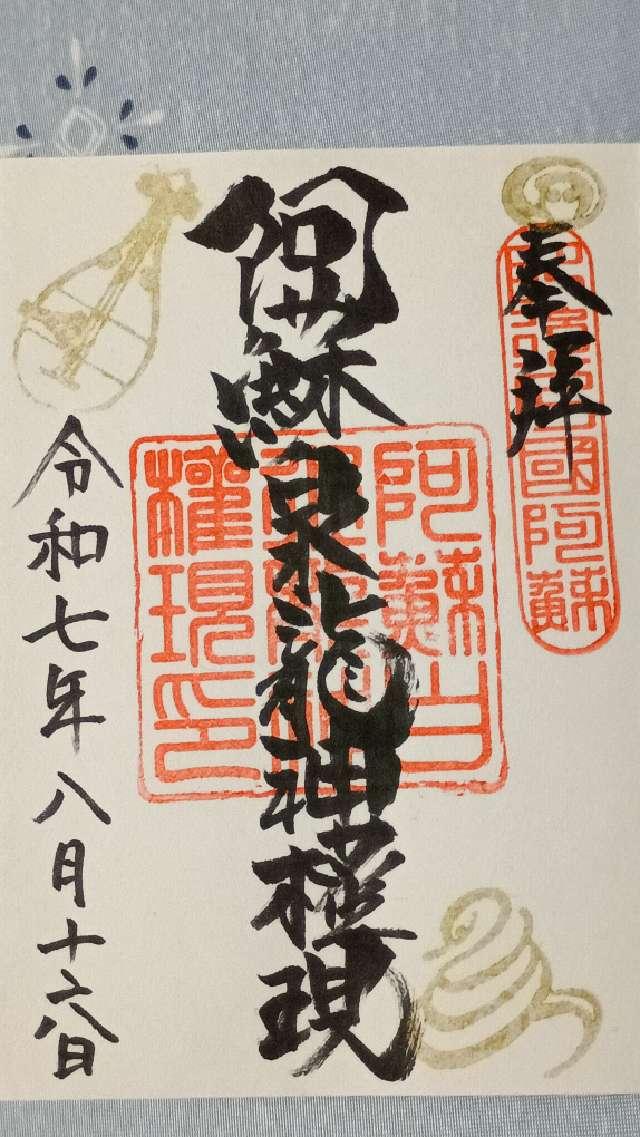 奉拝
國阿蘇
阿蘇泉龍神権現
阿蘇山
權現印
令和七年八月十六日